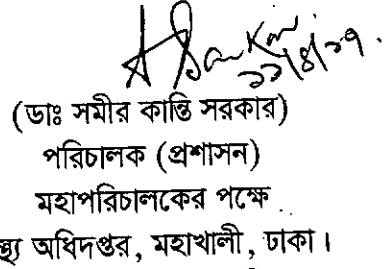 ২২/৪/১৭.
(ডাঃ সমীর কান্তি সরকার)
পরিচালক (প্রশাসন)
মহাপরিচালকের পক্ষে
অধিদপ্তর, মহাখালী, ঢাকা।